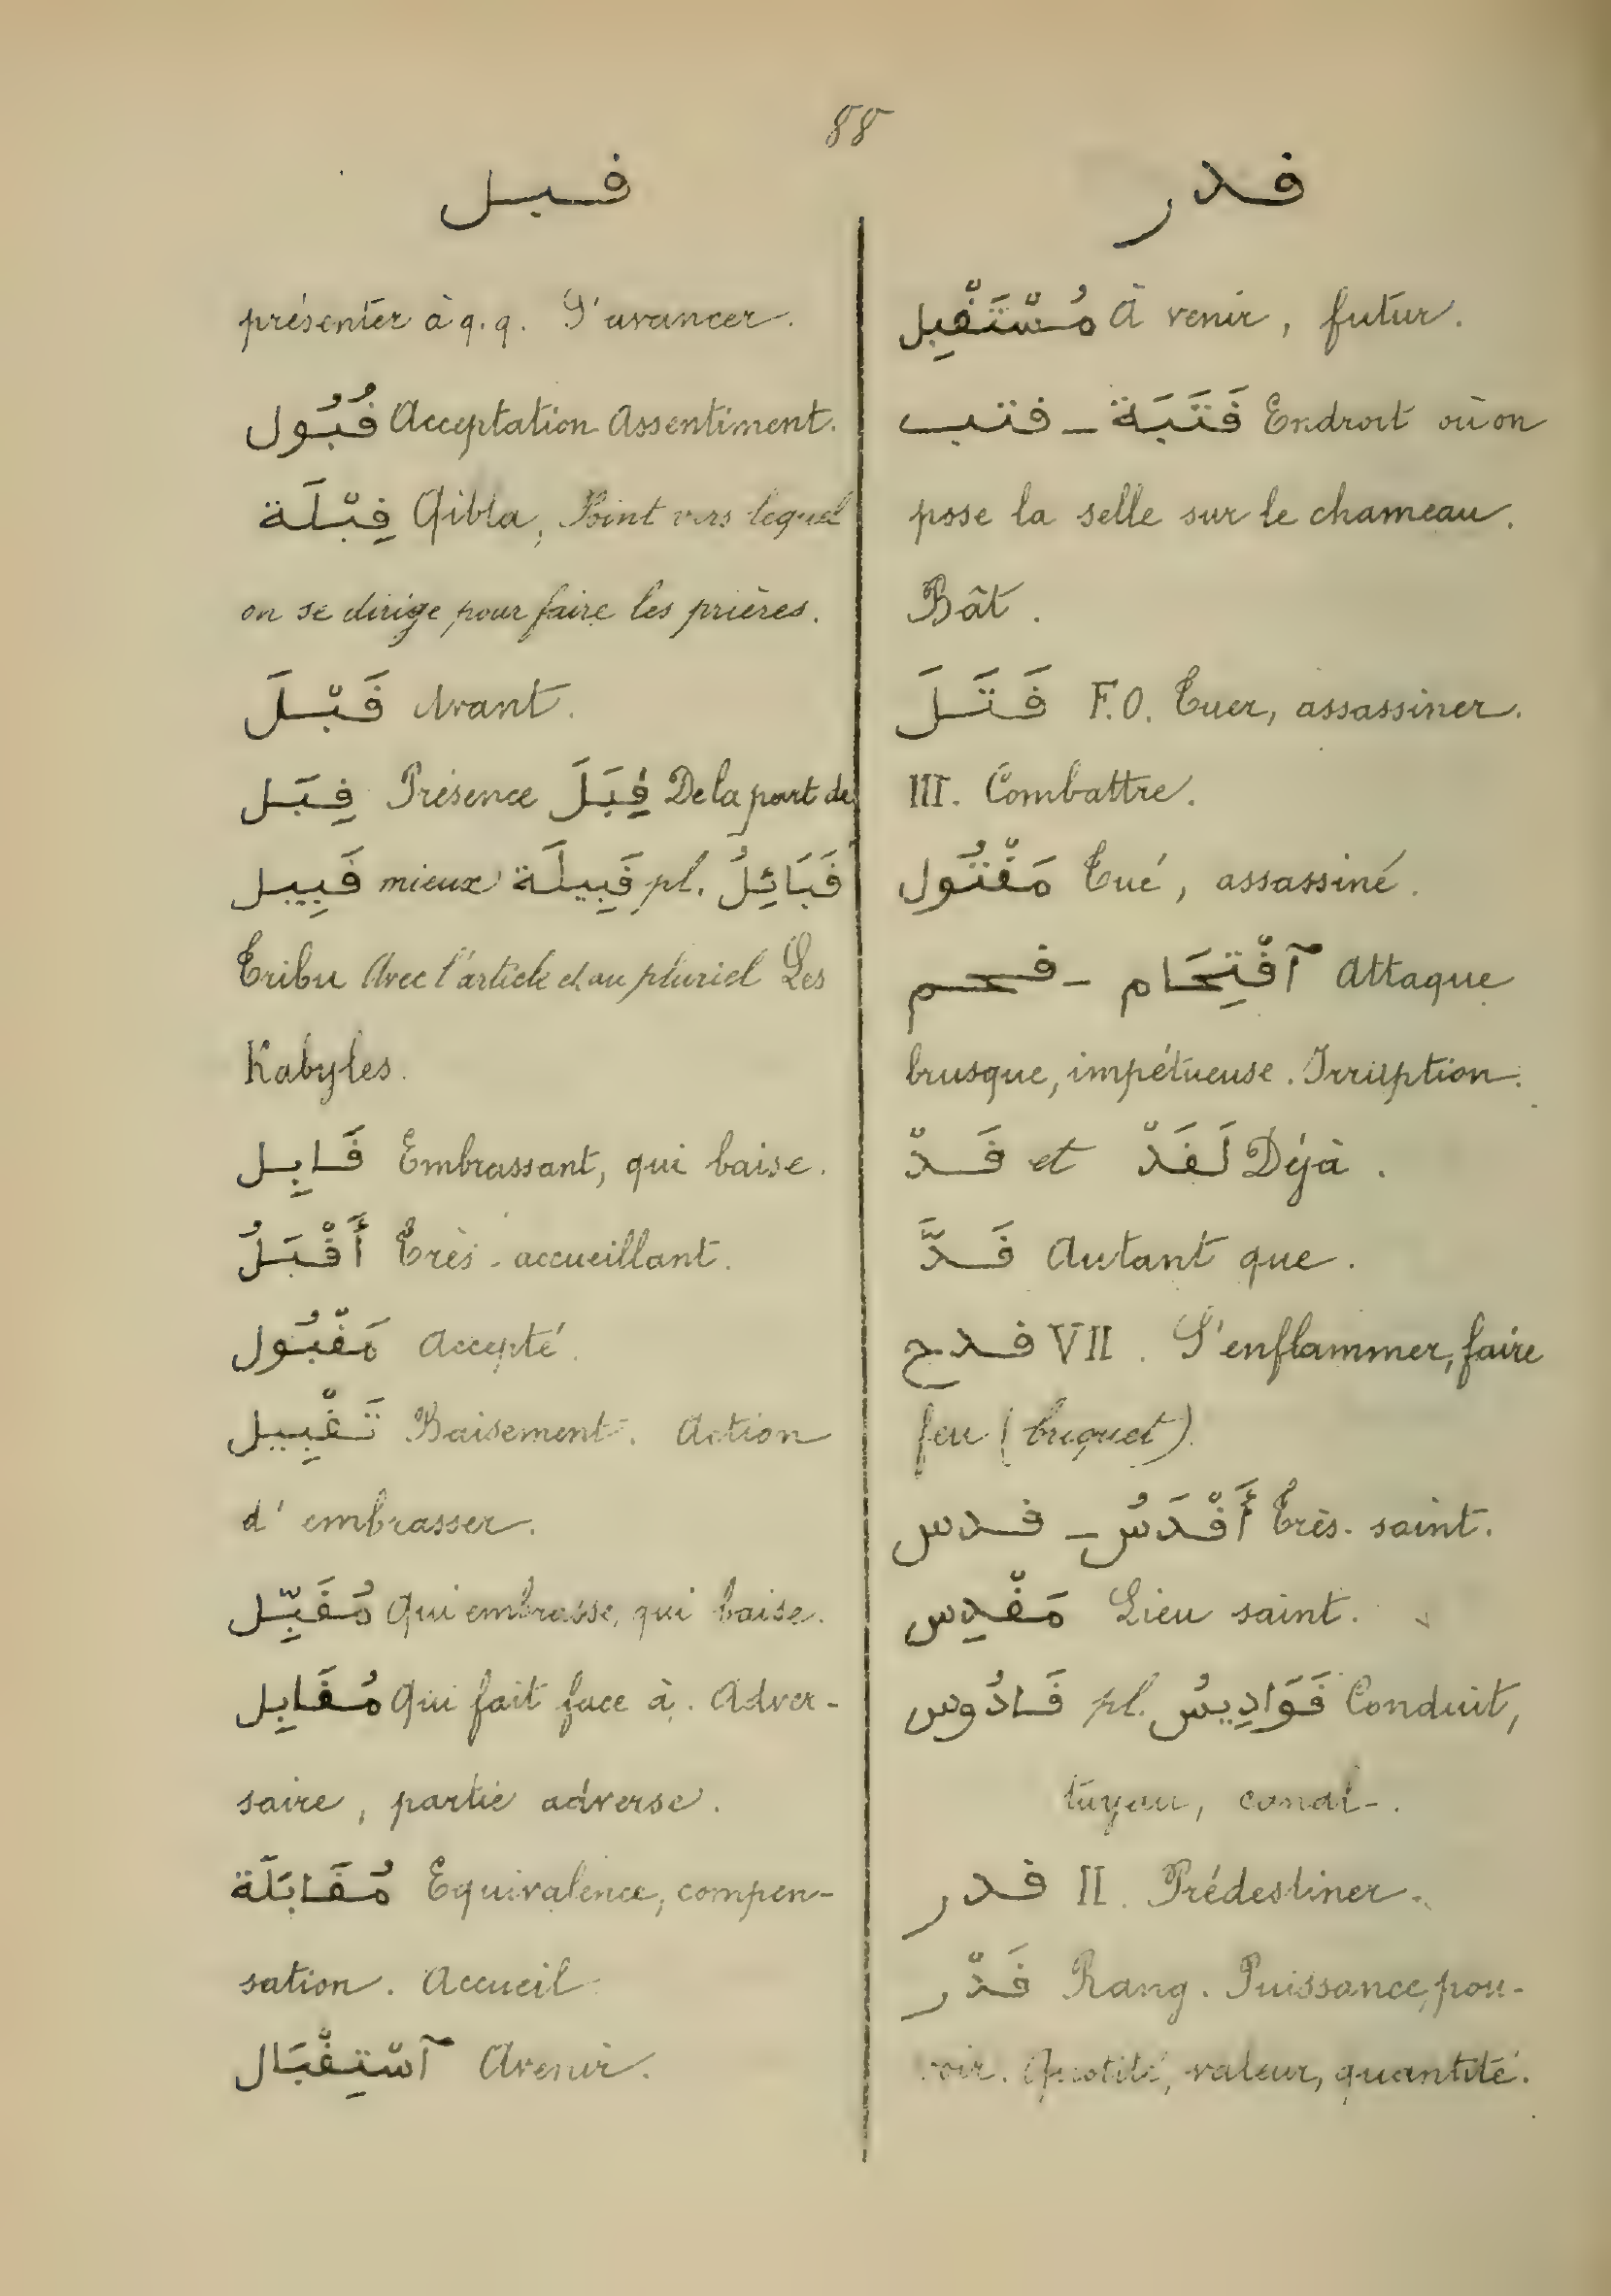 88
قبل
présenter à q.q. S'avancer.
قُبُول Acceptation Assentiment.
قِبْلَة Qibla, Point vers lequel
on se dirige pour faire les prières.
قَبْلَ Avant.
قِبَل Présence قِبَلَ De la part de
قَبِيل mieux قَبِيلَة pl. قَبَائِلُ
Tribu Avec l'article et au pluriel Les
Kabyles.
قَابِل Embrassant, qui baise.
أَقْبَلُ Très-accueillant.
مَقْبُول Accepté.
تَقْبِيل Baisement. Action
d'embrasser.
مُقَبِّل Qui embrasse, qui baise.
مُقَابِل Qui fait face à. Adver-
saire, partie adverse.
مُقَابَلَة Equivalence, compen-
sation. Accueil
آسْتِقْبَال Avenir.
قدر
مُسْتَقْبِل À venir, futur.
قتب - قَتَبَة Endroit où on
pose la selle sur le chameau.
Bât.
قَتَلَ F.O. Tuer, assassiner.
III. Combattre.
مَقْتُول Tué, assassiné.
قحم - آقْتِحَام Attaque
brusque, impétueuse. Irruption.
قَدْ et لَقَدْ Déjà.
قَدَّ Autant que.
قدح VII. S'enflammer, faire
feu (briquet).
قدس - أَقْدَسُ Très-saint.
مَقْدِس Lieu saint.
قَادُوس pl. قَوَادِيسُ Conduit,
tuyau, canal.
قدر II. Prédestiner.
قَدْر Rang. Puissance, pou-
voir. Quotité, valeur, quantité.